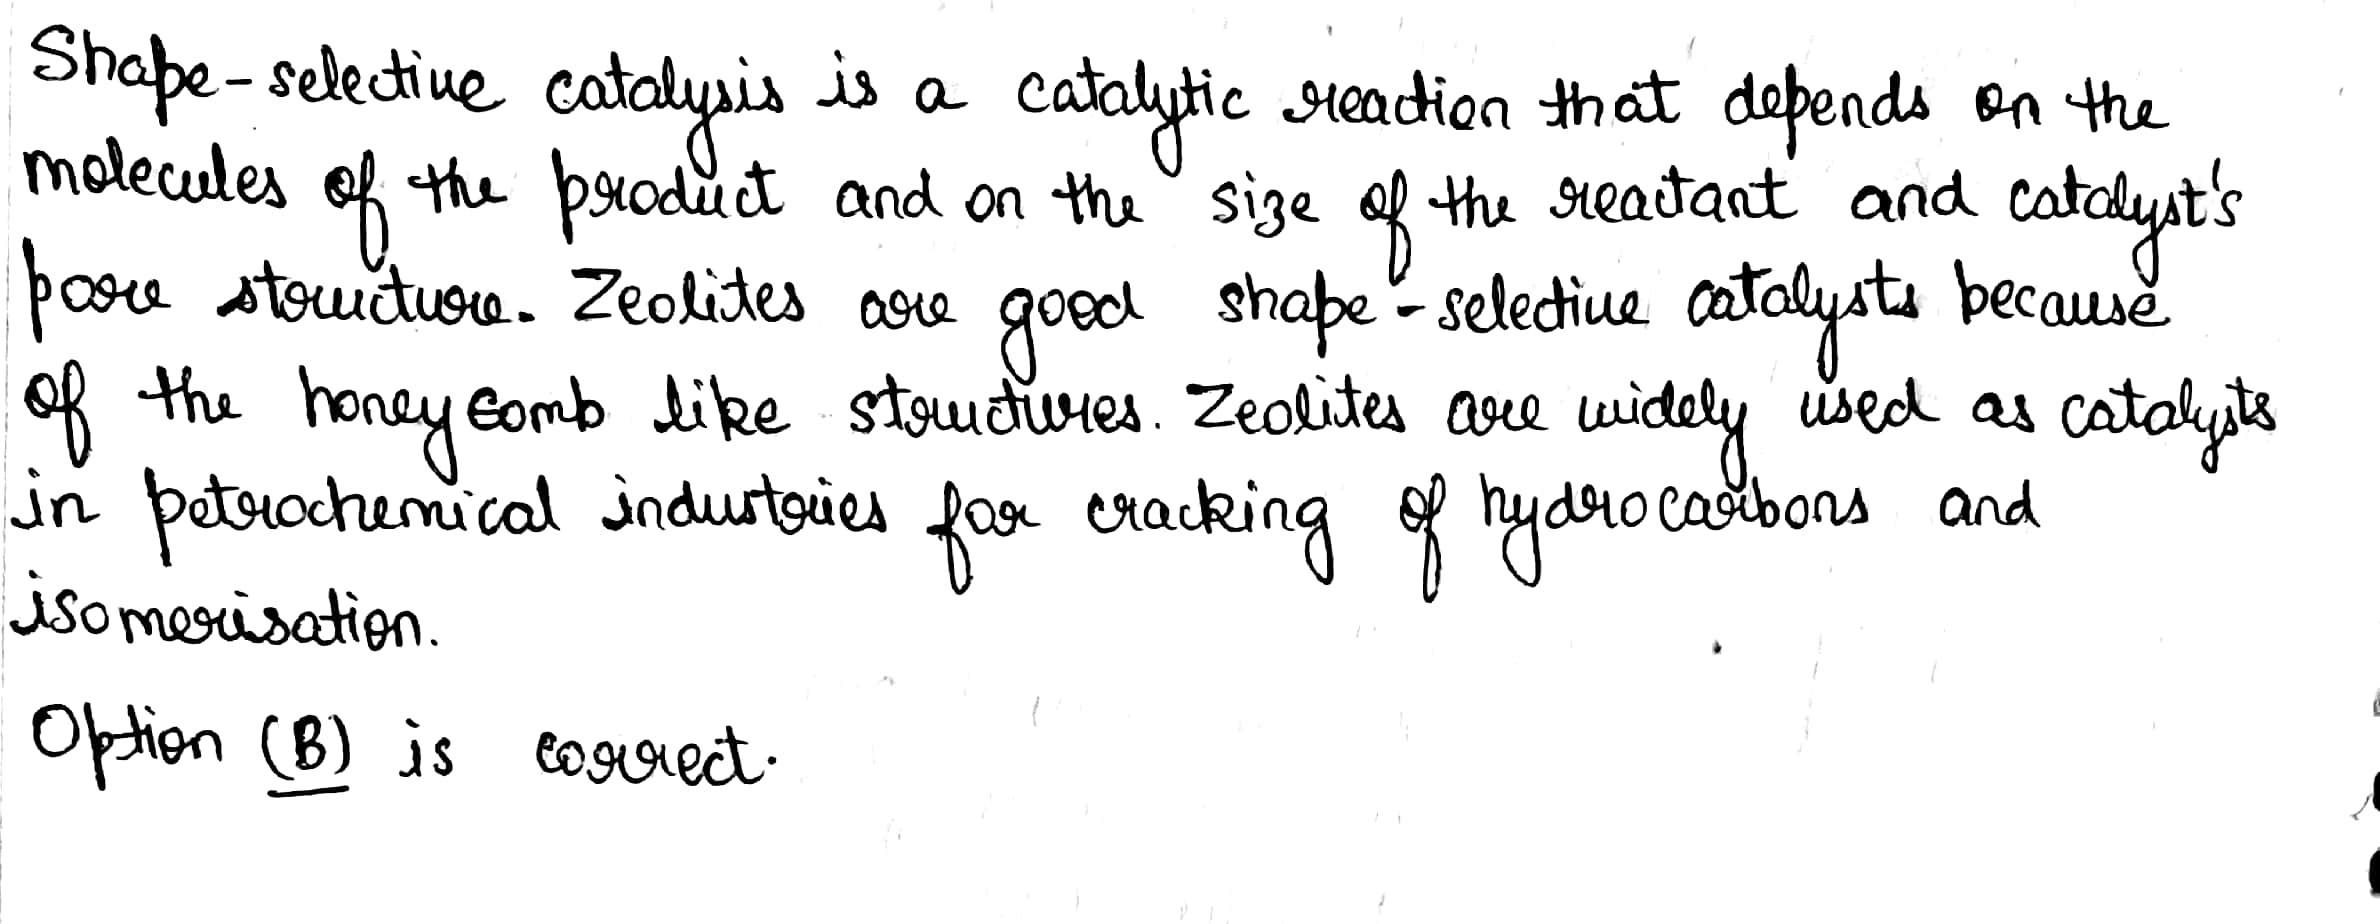 Shape-selective catalysis is a catalytic reaction that depends on the
molecules of the product and on the size of the reactant and catalyst's
pore structure. Zeolites are good shape-selective catalysts because
of the honeycomb like structures. Zeolites are widely used as catalysts
in petrochemical industries for cracking of hydrocarbons and
isomerisation.
Option (B) is correct.